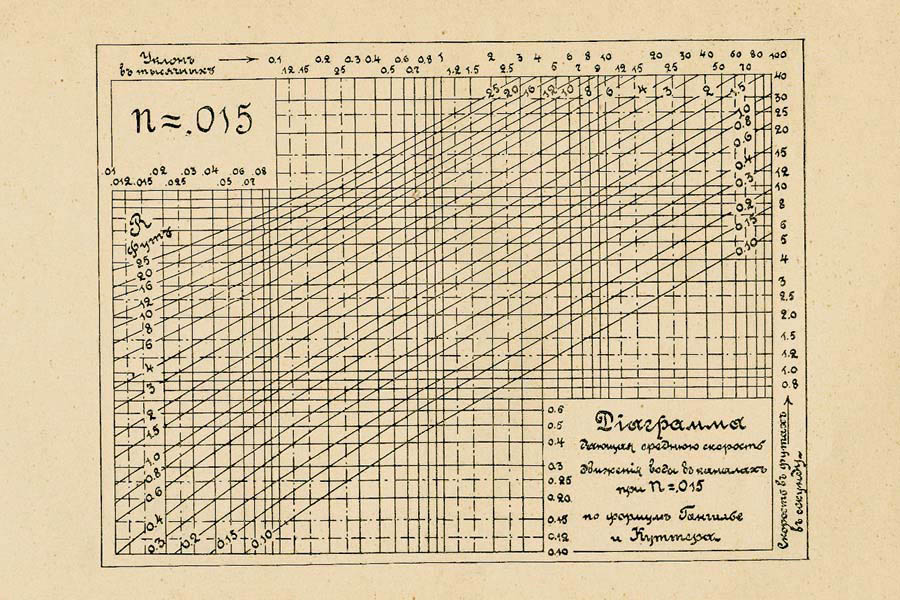 Уклонъ → 0.1 0.2 0.3 0.4 0.6 0.8 1 2 3 4 6 8 10 20 30 40 60 80 100
въ тысячныхъ .12 .15 25 0.5 0.7 1.2 1.5 2.5 5 7 9 12 15 25 50 70
n=.015
25 20 16 12 10 8 6 4 3 2 1.5
1.0
0.8
0.6
0.4
0.3
0.2
0.15
0.10
40
30
25
20
15
12
10
8
6
5
4
3
2.5
2.0
1.5
1.2
1.0
0.8
.01 .02 .03 .04 .06 .08
.012 .015 .025 .05 .07
R
Футъ
25
20
16
12
10
8
6
4
3
2
1.5
1.0
0.8
0.6
0.4
0.3 0.2 0.15 0.10
0.6
0.5
0.4
0.3
0.25
0.20
0.15
0.12
0.10
Діаграмма
дающая среднюю скорость
движенія воды въ каналахъ
при n=.015
по формулѣ Гангилье
и Куттера
Скорость въ футахъ →
въ секунду